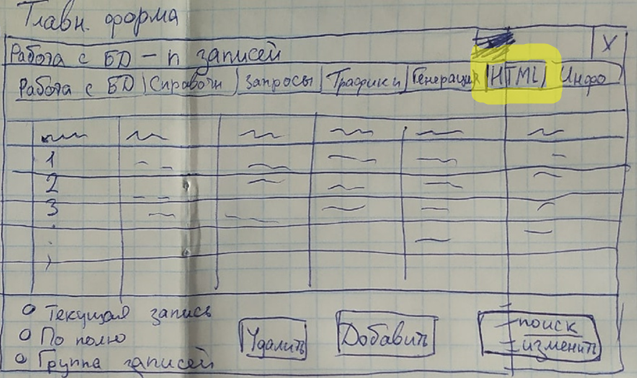 Главн. форма
Работа с БД — n записей X
Работа с БД Справочн Запросы Графики Генерация HTML Инфо
1
2
3
Текущая запись
По полю
Группа записей
Удалить
Добавить
поиск
изменить